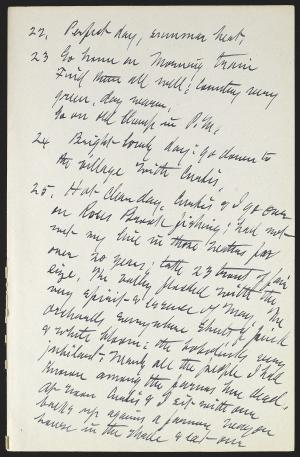 22. Perfect day, summer heat.
23 Go home on morning train
Find all well; country very
green, day warm,
Go on old Clump in P.M.
24 Bright lovely day; go down to
the village with Curtis.
25. Hot clear day. Curtis & I go over
on Rose's Brook fishing; had not
wet my line in those waters for
over 20 years; take 23 trout of fair
size. The valley flooded with the
very spirit & essence of May. The
orchards everywhere bursts of pink
& white bloom: the bobolinks very
jubilant. Nearly all the people I had
known among the farms here dead.
At noon Curtis & I sit with our
backs up against a farmer wagon
house in the shade & eat our